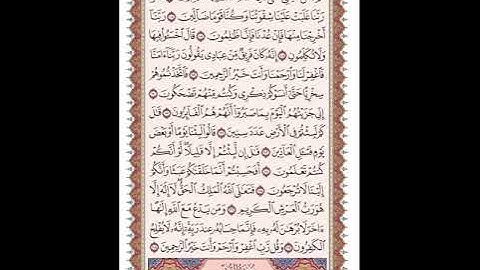 رَبَّنَا غَلَبَتْ عَلَيْنَا شِقْوَتُنَا وَكُنَّا قَوْمًا ضَآلِّينَ ۝ رَبَّنَآ
أَخْرِجْنَا مِنْهَا فَإِنْ عُدْنَا فَإِنَّا ظَٰلِمُونَ ۝ قَالَ ٱخْسَـُٔوا۟ فِيهَا
وَلَا تُكَلِّمُونِ ۝ إِنَّهُۥ كَانَ فَرِيقٌ مِّنْ عِبَادِى يَقُولُونَ رَبَّنَآ ءَامَنَّا
فَٱغْفِرْ لَنَا وَٱرْحَمْنَا وَأَنتَ خَيْرُ ٱلرَّٰحِمِينَ ۝ فَٱتَّخَذْتُمُوهُمْ
سِخْرِيًّا حَتَّىٰٓ أَنسَوْكُمْ ذِكْرِى وَكُنتُم مِّنْهُمْ تَضْحَكُونَ ۝
إِنِّى جَزَيْتُهُمُ ٱلْيَوْمَ بِمَا صَبَرُوٓا۟ أَنَّهُمْ هُمُ ٱلْفَآئِزُونَ ۝ قَٰلَ
كَمْ لَبِثْتُمْ فِى ٱلْأَرْضِ عَدَدَ سِنِينَ ۝ قَالُوا۟ لَبِثْنَا يَوْمًا أَوْ بَعْضَ
يَوْمٍ فَسْـَٔلِ ٱلْعَآدِّينَ ۝ قَٰلَ إِن لَّبِثْتُمْ إِلَّا قَلِيلًا لَّوْ أَنَّكُمْ
كُنتُمْ تَعْلَمُونَ ۝ أَفَحَسِبْتُمْ أَنَّمَا خَلَقْنَٰكُمْ عَبَثًا وَأَنَّكُمْ
إِلَيْنَا لَا تُرْجَعُونَ ۝ فَتَعَٰلَى ٱللَّهُ ٱلْمَلِكُ ٱلْحَقُّ لَآ إِلَٰهَ إِلَّا
هُوَ رَبُّ ٱلْعَرْشِ ٱلْكَرِيمِ ۝ وَمَن يَدْعُ مَعَ ٱللَّهِ إِلَٰهًا
ءَاخَرَ لَا بُرْهَٰنَ لَهُۥ بِهِۦ فَإِنَّمَا حِسَابُهُۥ عِندَ رَبِّهِۦٓ إِنَّهُۥ لَا يُفْلِحُ
ٱلْكَٰفِرُونَ ۝ وَقُل رَّبِّ ٱغْفِرْ وَٱرْحَمْ وَأَنتَ خَيْرُ ٱلرَّٰحِمِينَ ۝